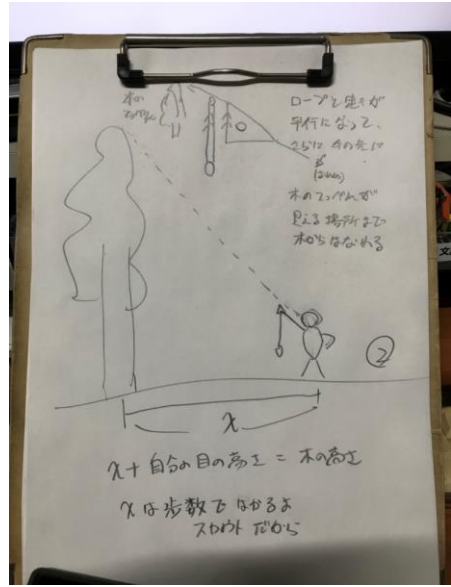 木の
てっぺん
ロープと生きが
平行になって、
さらに その先に
木のてっぺんが
見える場所まで
木からはなれる
②
x
x + 自分の目の高さ = 木の高さ
xは歩数ではかるよ
スカウトだから